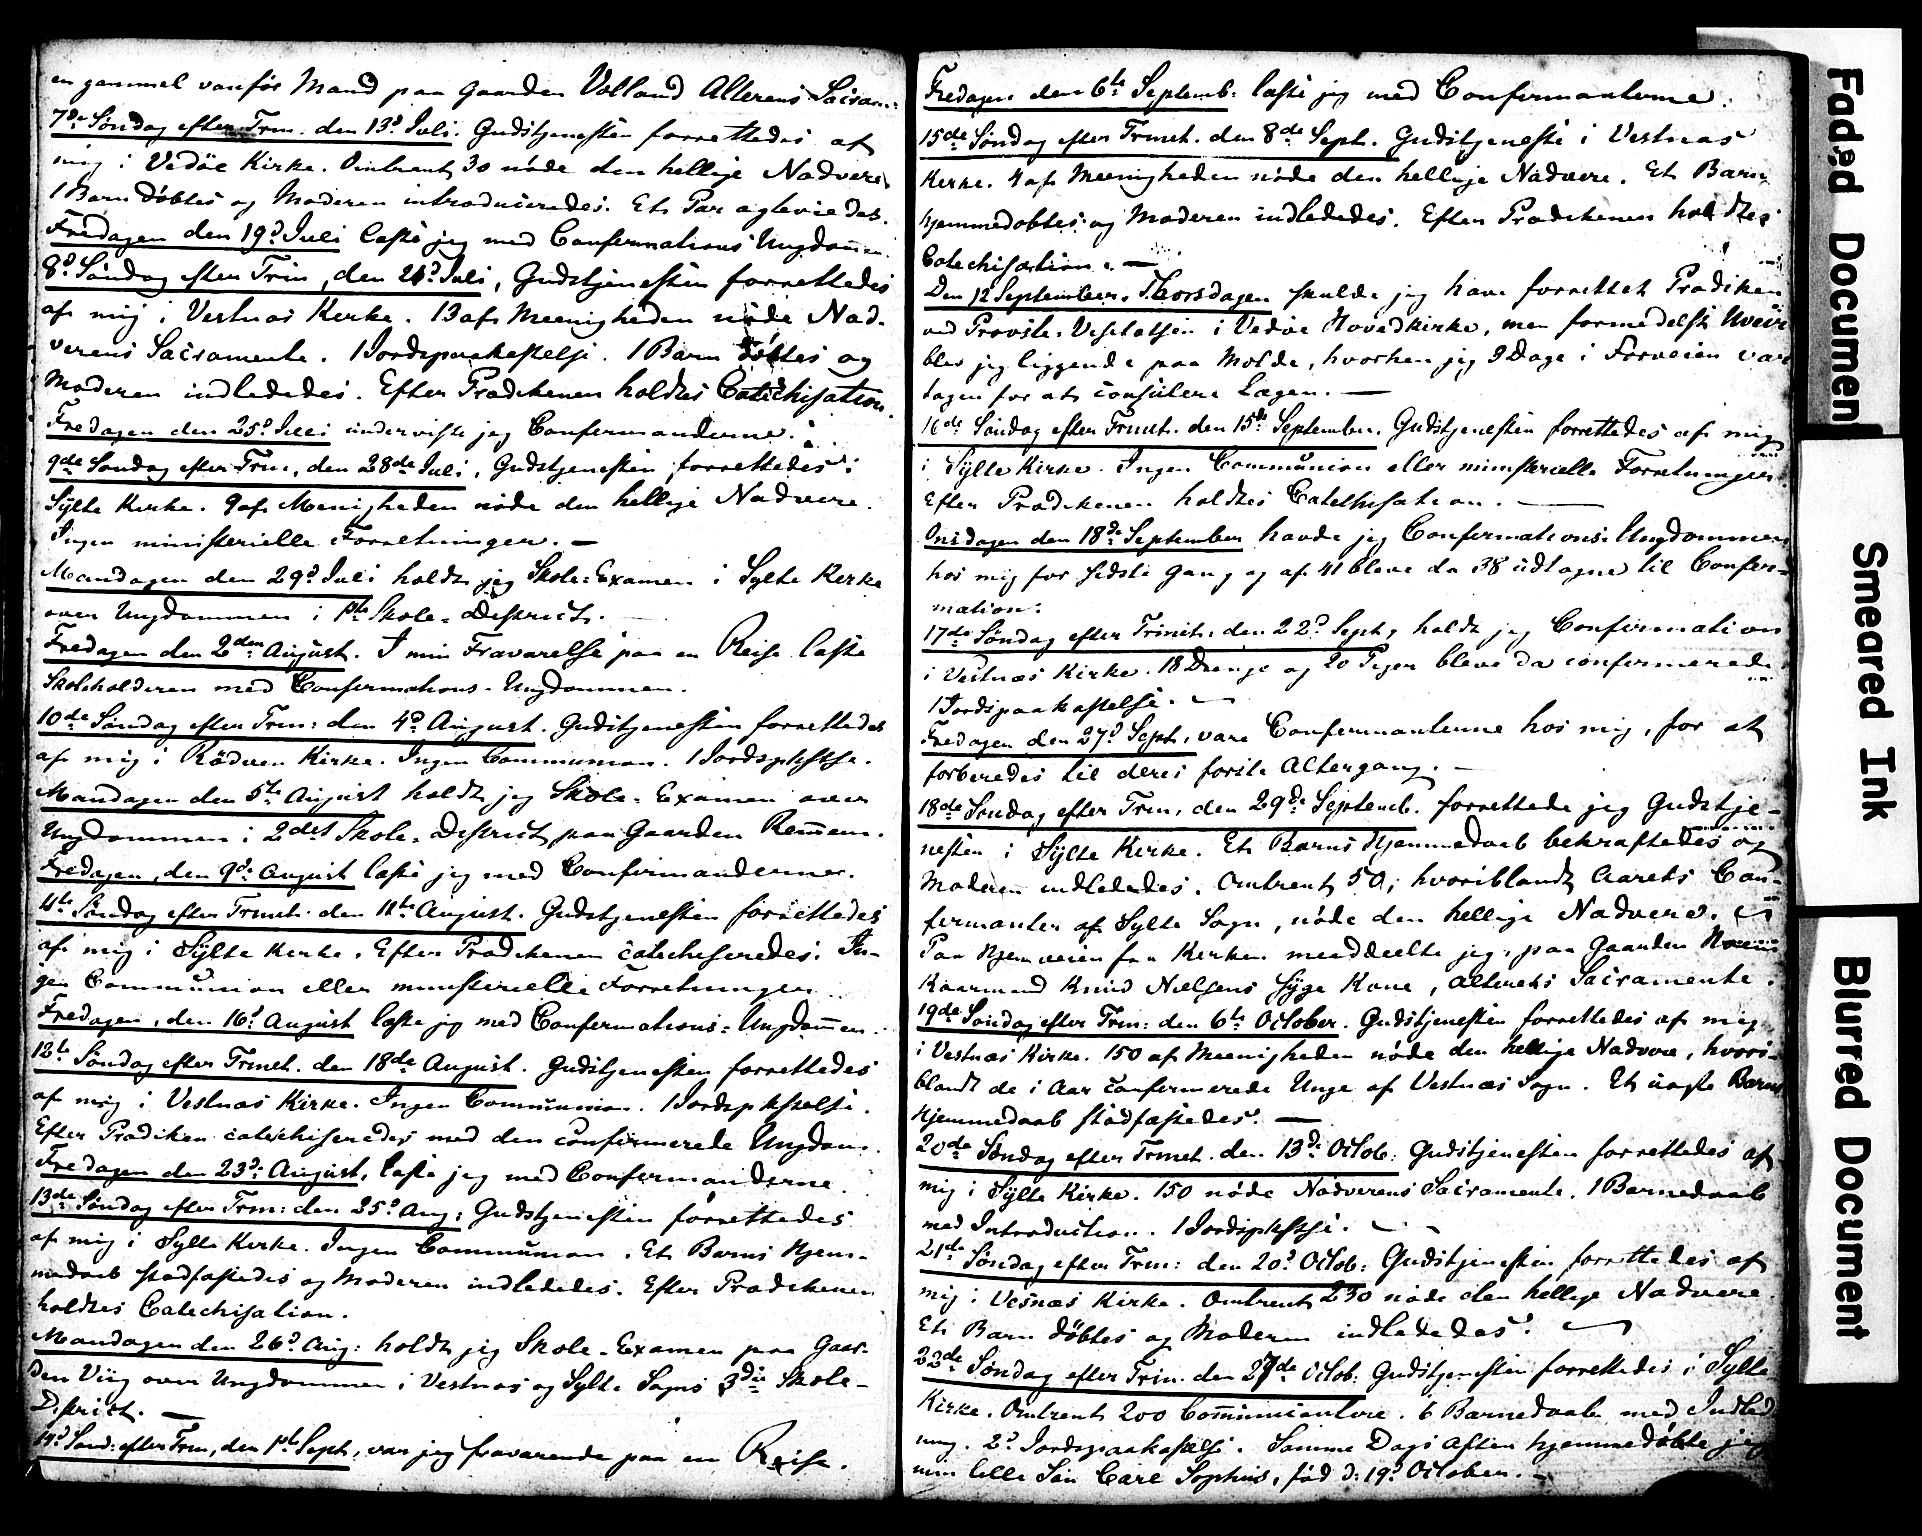 en gammel vanför Mand paa Gaarden Volland Alterens Sacram:
7de Söndag efter Trin. den 13d Juli. Gudstjenesten forrettedes af
mig i Vedöe Kirke. Omtrent 30 nöde den hellige Nadvere
1 Barn döbtes og Moderen introduceredes. Et Par egteviedes.
Fredagen den 19d Juli læste jeg med Confirmations Ungdommen.
8d Söndag efter Trin, den 21d Juli, Gudstjenesten forrettedes
af mig i Vestnæs Kirke. 13 af Meenigheden nöde Nad-
verens Sacramente. 1 Jordspaakastelse. 1 Barn döbtes og
Moderen indlededes. Efter Prædikenen holdtes Catechisation.
Fredagen den 25d Juli underviste jeg Confirmanderne.
9de Söndag efter Trin, den 28de Juli, Gudstjenesten forrettedes i
Sylte Kirke. 9 af Menigheden nöde den hellige Nadvere.
Ingen ministerielle Forretninger. —
Mandagen den 29d Juli holdt jeg Skole-Examen i Sylte Kirke
over Ungdommen i 1ste Skole-District.
Fredagen den 2den August. I min Fraværelse paa en Reise læste
Skoleholderen med Confirmations-Ungdommen.
10de Söndag efter Trin: den 4d August. Gudstjenesten forrettedes
af mig i Rödven Kirke. Ingen Communion. 1 Jordspkstse.
Mandagen den 5te August holdt jeg Skole-Examen over
Ungdommen i 2det Skole-District paa Gaarden Remmem.
Fredagen, den 9de August læste jeg med Confirmanderne.
11te Söndag efter Trinet. den 11te August. Gudstjenesten forrettedes
af mig i Sylte Kirke. Efter Prædikenen catechiseredes. In-
gen Communion eller ministerielle Forretninger.
Fredagen, den 16d August læste jeg med Confirmations-Ungdommen.
12te Söndag efter Trinet. den 18de August. Gudstjenesten forrettedes
af mig i Vestnæs Kirke. Ingen Communion. 1 Jordspkstelse.
Efter Prædiken catechiseredes med den confirmerede Ungdom.
Fredagen den 23d August, læste jeg med Confirmanderne.
13de Söndag efter Trin: den 25d Aug: Gudstjenesten forrettedes
af mig i Sylte Kirke. Ingen Communion. Et Barns Hjem-
medaab stadfæstedes og Moderen indlededes. Efter Prædikenen
holdtes Catechisation.
Mandagen den 26d Aug: holdt jeg Skole-Examen paa Gaar-
den Viig over Ungdommen i Vestnæs og Sylte Sogns 3die Skole-
District. —
14d Sönd: efter Trin, den 1ste Sept, var jeg fraværende paa en Reise.
Fredagen den 6te Septemb: læste jeg med Confirmanterne.
15de Söndag efter Trinet. den 8de Sept. Gudstjeneste i Vestnæs
Kirke. 4 af Meenigheden nöde den hellige Nadvere. Et Barn
hjemmedöbtes og Moderen indlededes. Efter Prædikenen holdtes
Catechisation. —
Den 12 September, Thorsdagen skulde jeg have forrettet Prædiken
ved Provste-Visitatsen i Vedöe Hovedkirke, men formedelst Uveir
blev jeg liggende paa Molde, hvorhen jeg 9 Dage i Forveien var
tagen for at consulere Lægen. —
16de Söndag efter Trinet. den 15de September. Gudstjenesten forrettedes af mig
i Sylte Kirke. Ingen Communion eller ministerielle Forretninger.
Efter Prædikenen holdtes Catechisation. —
Onsdagen den 18de September havde jeg Confirmations-Ungdommen
hos mig for sidste Gang og af 41 bleve da 38 udtagne til Confir-
mation.
17de Söndag efter Trinit: den 22d Sept, holdt jeg Confirmation
i Vestnæs Kirke. 18 Drenge og 20 Piger bleve da confirmerede.
1 Jordspaakastelse. —
Fredagen den 27d Sept, vare Confirmanterne hos mig, for at
forberedes til deres förste Altergang. —
18de Söndag efter Trin, den 29de Septemb. forrettede jeg Gudstje-
nesten i Sylte Kirke. Et Barns Hjemmedaab bekræftedes og
Moderen indlededes. Omtrent 50, hvoriblandt Aarets Con-
firmanter af Sylte Sogn, nöde den hellige Nadvere.
Paa Hjemveien fra Kirken meddeelte jeg, paa Gaarden
Kaarmand Knud Nielsens syge Kone, Alterets Sacramente.
19de Söndag efter Trin: den 6te October. Gudstjenesten forrettedes af mig
i Vestnæs Kirke. 150 af Meenigheden nöde den hellige Nadvere, hvori-
blandt de i Aar confirmerede Unge af Vestnæs Sogn. Et uægte Barns
Hjemmedaab stadfæstedes. —
20de Söndag efter Trinet. den 13de Octob: Gudstjenesten forrettedes af
mig i Sylte Kirke. 150 nöde Nadverens Sacramente. 1 Barnedaab
med Introduction. 1 Jordspkstse. —
21de Söndag efter Trin: den 20d Octob: Gudstjenesten forrettedes af
mig i Vesnæs Kirke. Omtrent 230 nöde den hellige Nadvere.
Et Barn döbtes og Moderen indlededes. —
22de Söndag efter Trin. den 27de Octob: Gudstjenesten forrettedes i Sylte
Kirke. Omtrent 200 Communicantere. 6 Barnedaab med Indled-
ning. 2d Jordspaakastelse. Samme Dags Aften hjemmedöbte jeg
min lille Sön Carl Sophus, föd d: 19d October. —
Faded Document
Smeared Ink
Blurred Document